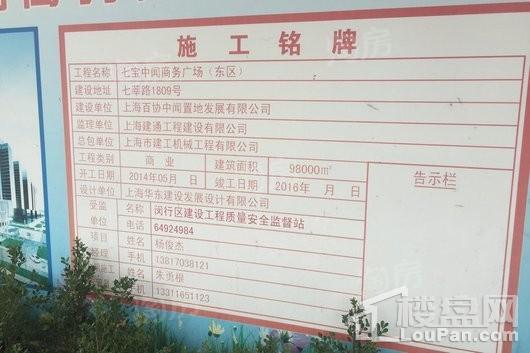 施工铭牌
工程名称 七宝中闻商务广场（东区）
建设地址 七莘路1809号
建设单位 上海百协中闻置地发展有限公司
监理单位 上海建通工程建设有限公司
总包单位 上海市建工机械工程有限公司
工程类别 商业 建筑面积 98000㎡
开工日期 2014年05月 日 竣工日期 2016年 月 日
告示栏
设计单位 上海华东建设发展设计有限公司
受监单位 名称 闵行区建设工程质量安全监督站
电话 64924984
项目经理 姓名 杨俊杰
手机 13817038121
姓名 朱勇根
手机 13311651123
楼盘网
LouPan.com